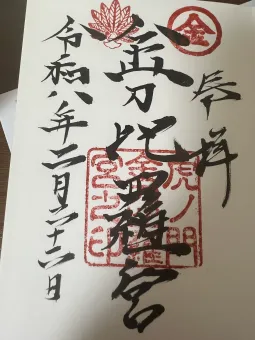 奉拝
金
金刀比羅宮
虎ノ門
金刀比羅
宮之印
令和八年二月二十六日